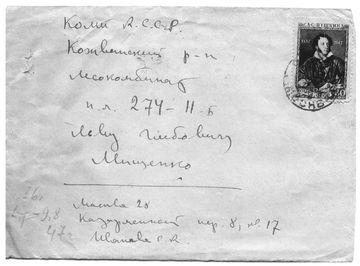 Коми А.С.С.Р.
Кожвинский р-н
Лесокомбинат
п.я. 274-11-Б
Льву Глебовичу
Мищенко
Москва 20
Казарменный пер. 8, кв. 17
Иванова
А.С. ПУШКИН